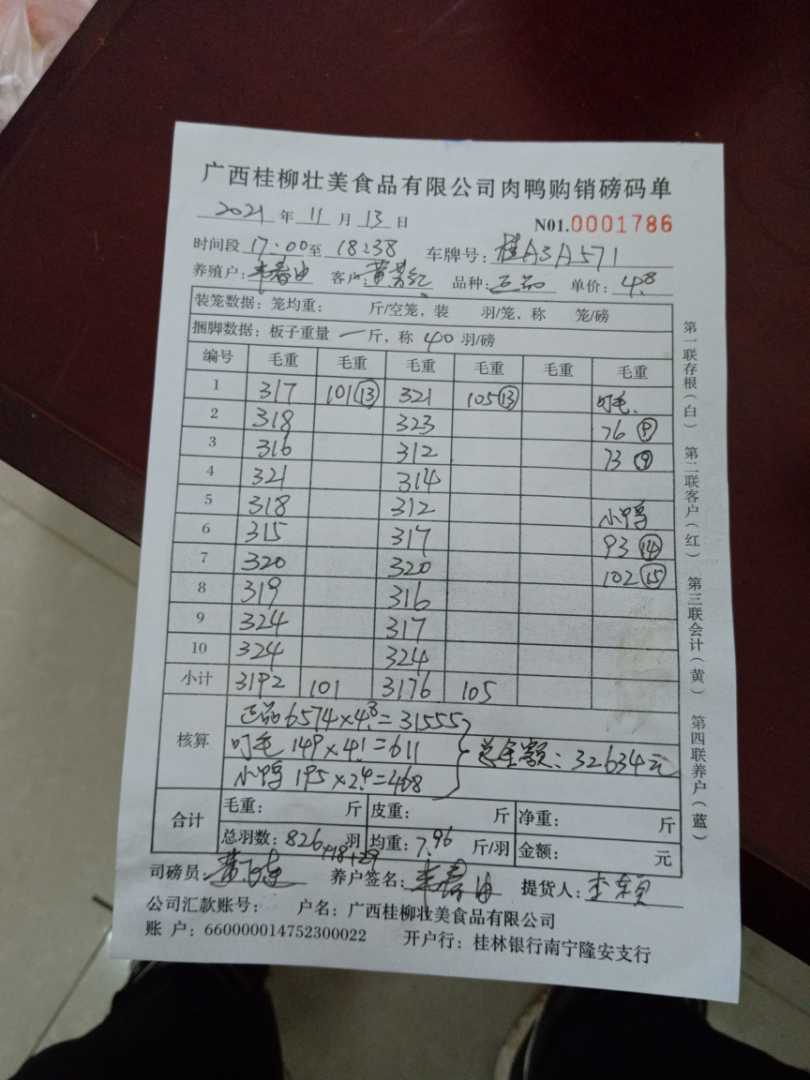 广西桂柳壮美食品有限公司肉鸭购销磅码单
2021 年 11 月 13 日 N01.0001786
时间段 17:00 至 18:38 车牌号: 桂A3A571
养殖户: 客户: 品种: 正品 单价: 4.8
装笼数据: 笼均重: 斤/空笼, 装 羽/笼, 称 笼/磅
捆脚数据: 板子重量 一 斤, 称 40 羽/磅
编号 毛重 毛重 毛重 毛重 毛重 毛重
1 317 101 ⑬ 321 105 ⑬ 叮毛.
2 318 323 76 ⑨
3 316 312 73 ⑨
4 321 314
5 318 312 小鸭
6 315 317 93 ⑭
7 320 320 102 ⑮
8 319 316
9 324 317
10 324 324
小计 3192 101 3176 105
核算
正品 6574×4.8=31555
叮毛 149×4.1=611
小鸭 195×2.4=468
总金额: 32634元
合计 毛重: 斤 皮重: 斤 净重: 斤
总羽数: 826 羽 均重: 7.96 斤/羽 金额: 元
+18+29
司磅员: 养户签名: 提货人:
公司汇款账号: 户名: 广西桂柳壮美食品有限公司
账 户: 660000014752300022 开户行: 桂林银行南宁隆安支行
第一联存根(白) 第二联客户(红) 第三联会计(黄) 第四联养户(蓝)